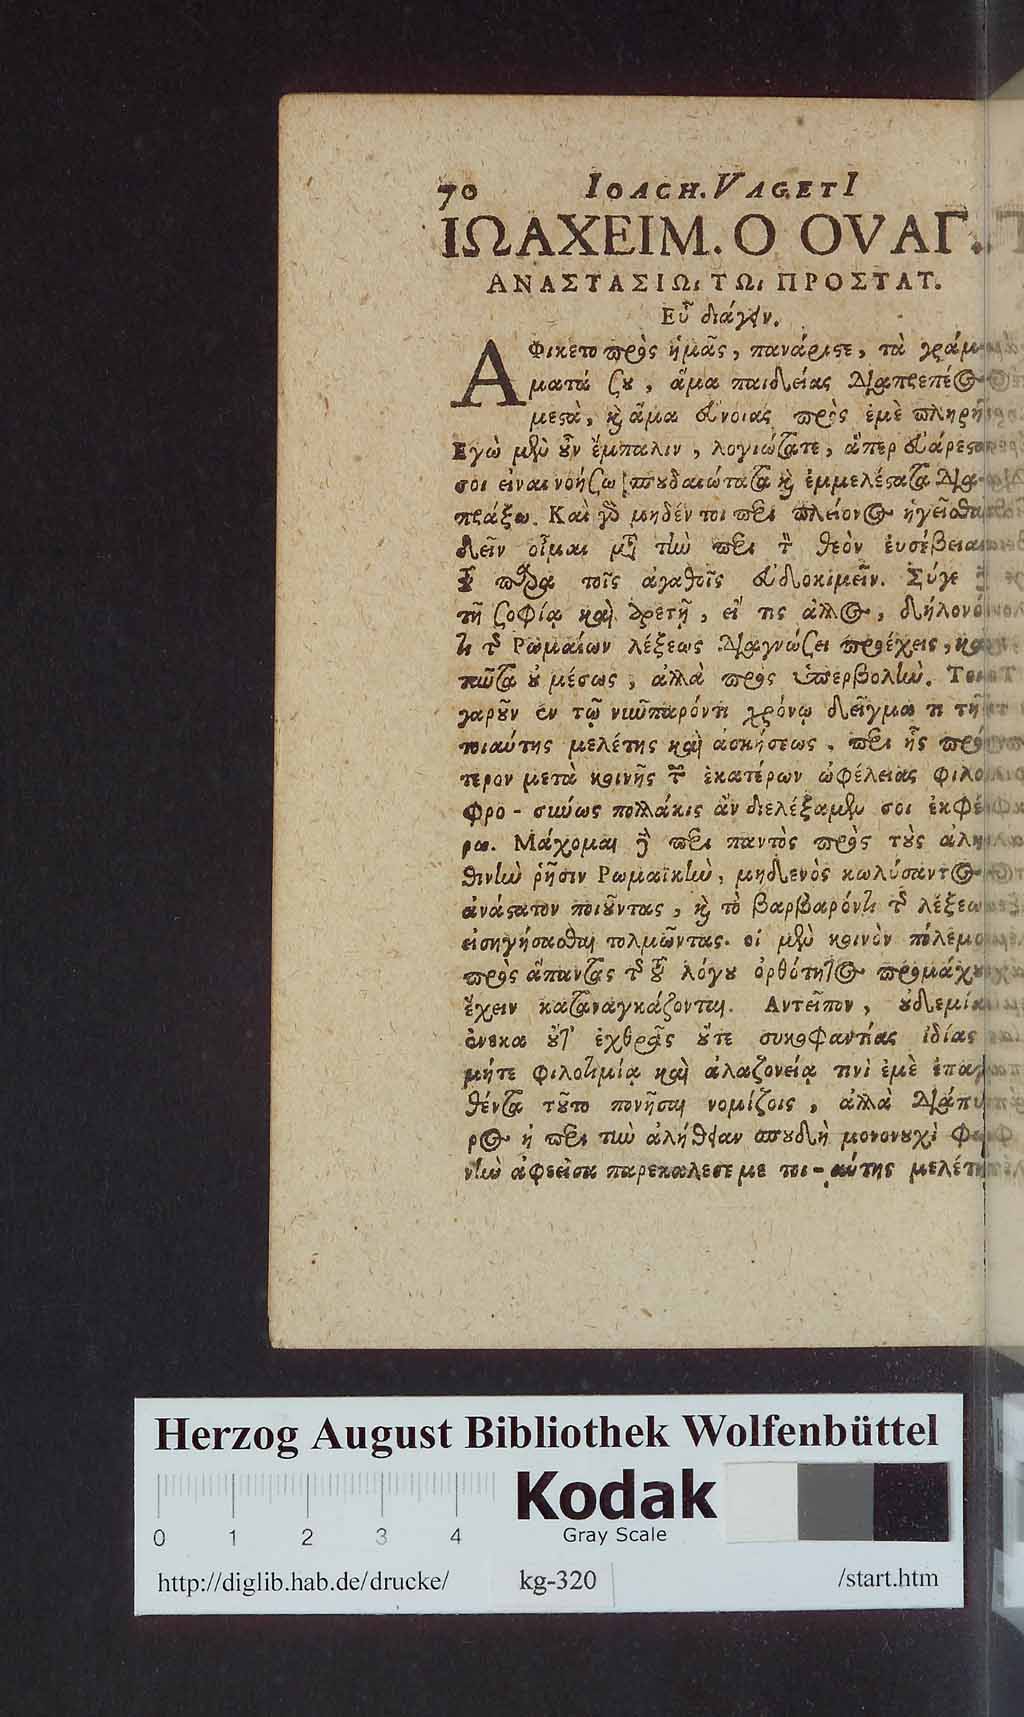 70 IOACH. VAGETI
ΙΩΑΧΕΙΜ. Ο ΟΥΑΓ.
ΑΝΑΣΤΑΣΙΩι ΤΩι ΠΡΟΣΤΑΤ.
Εὖ διάγειν.
ΑΦίκετο πρὸς ἡμᾶς, πανάριστε, τὰ γράμ-
ματά σου, ἅμα παιδείας διαπρεπέος
μεστὰ, καὶ ἅμα εὐνοίας πρὸς ἐμὲ πλήρη
Εγὼ μὲν οὖν ἔμπαλιν, λογιώτατε, ἅπερ εὐάρεστα
σοι εἶναι νοήσω σπουδαιώτατα καὶ ἐμμελέστατα δια-
πράξω. Καὶ γὰρ μηδέν τοι περὶ πλείονος ἡγεῖσθαι
δεῖν οἶμαι μετὰ τὴν περὶ τὸν θεὸν ἐυσέβειαν
τοῦ παρὰ τοῖς ἀγαθοῖς εὐδοκιμεῖν. Σύγε
τῇ σοφίᾳ καὶ ἀρετῇ, εἴ τις ἄλλος, δήλονό-
τι τῆς Ρωμαίων λέξεως διαγνώσει προέχεις, καὶ
πάντα οὐ μέσως, ἀλλὰ πρὸς ὑπερβολὴν.
γαροῦν ἐν τῷ νῦν παρόντι χρόνῳ δεῖγμα τι τῆς
τοιαύτης μελέτης καὶ ἀσκήσεως. περὶ ἧς πρό-
τερον μετὰ κοινῆς τῶν ἑκατέρων ὠφέλειας φιλο-
φρο-σύνως πολλάκις ἂν διελέξαμην σοι ἐκφέ-
ρω. Μάχομαι γὰρ περὶ παντὸς πρὸς τοὺς ἀλη-
θινὴν ῥῆσιν Ρωμαϊκὴν, μηδενὸς κωλύσαντος
ἀνάστατον ποιοῦντας, καὶ τὸ βαρβαρόντι τῆς λέξεως
εἰσηγήσασθαι τολμῶντας. οἱ μὲν κοινὸν πόλεμον
πρὸς ἅπαντας τῆς τοῦ λόγου ὀρθότητος προμάχους
ἔχειν καταναγκάζονται. Αντεῖπον, οὐδεμίας
ἕνεκα οὔτ' ἐχθρᾶς οὔτε συκοφαντίας ἰδίας
μήτε φιλοτιμίᾳ καὶ ἀλαζονείᾳ τινὶ ἐμὲ ἐπαρ-
θέντα τοῦτο πονῆσαι νομίζοις, ἀλλὰ διάπυ-
ρος ἡ περὶ τὴν ἀλήθειαν σπουδὴ μονονουχὶ φω-
νὴν ἀφεῖσα παρεκάλεσε με τοι-αύτης μελέτης
Herzog August Bibliothek Wolfenbüttel
Kodak
Gray Scale
0 1 2 3 4
http://diglib.hab.de/drucke/ kg-320 /start.htm